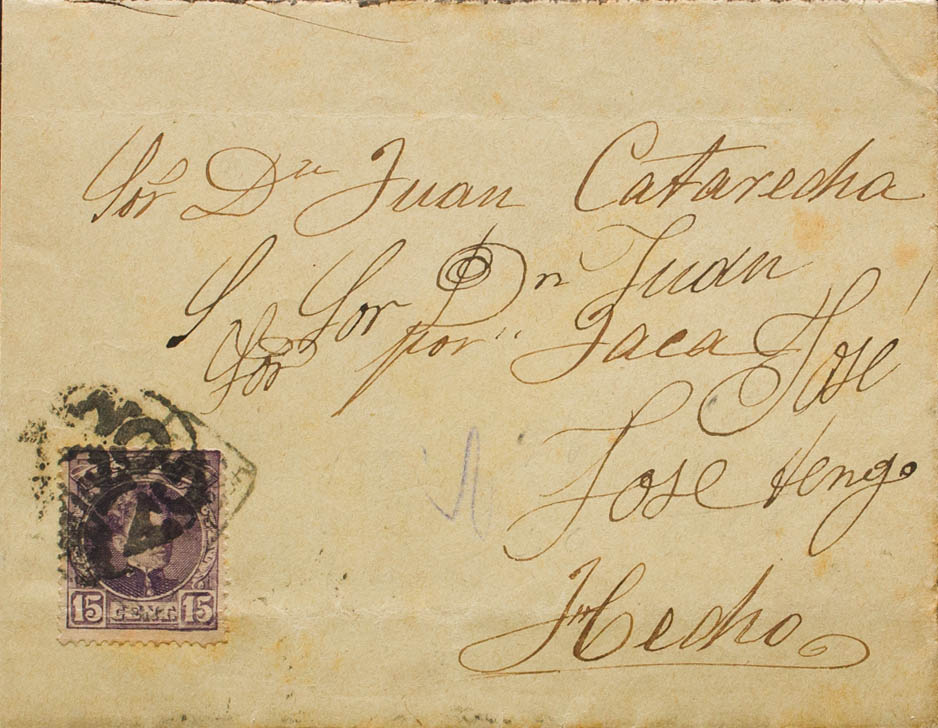 Sor Dn Juan Catarecha
S Sor Dn Juan
Sor por Jaca José
José Vengo
Hecho
15 CENT. 15